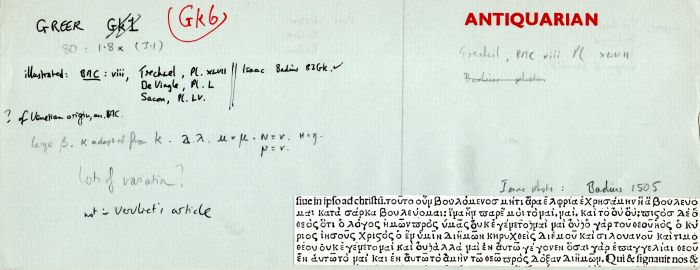 GREEK Gk1 (Gk6)
80 : 1.8 x (3.1)
illustrated: BMC: viii, Trechsel, Pl. XLVII || Isaac Badius 83Gk. ✓
De Vingle, Pl. L
Sacon, Pl. LV.
? of Venetian origin, BMC.
Large β. κ adapted from k.
Lots of variation?
not in Vervliet's article
ANTIQUARIAN
Trechsel, BMC viii Pl XLVII
Badius photo
Isaac photo: Badius 1505
siue in ipso ad christũ. τοῦτο οὖν βουλόμενος μήτι ἄρα ἐλαφρία ἐχρησάμην ἢ ἃ βουλεύο
μαι κατὰ σάρκα βουλεύομαι: ἵνα ἦν παρ' ἐμοὶ τὸ ναὶ, ναὶ, καὶ τὸ οὒ οὔ: πιςὸς δὲ ὁ
θεὸς ὅτι ὁ λόγος ἡμῶν πρὸς ὑμᾶς οὐκ ἐγένετο ναὶ καὶ οὔ. ὁ γὰρ τοῦ θεοῦ υἱὸς, ὁ κύ
ριος ἰησοῦς χριςὸς ὁ ἐν ὑμῖν δι ἡμῶν κηρυχθεὶς δι ἐμοῦ καὶ σιλουανοῦ καὶ τιμο
θέου οὐκ ἐγένετο ναὶ καὶ οὒ ἀλλὰ ναὶ ἐν αὐτῷ γέγονεν ὅσαι γὰρ ἐπαγγελίαι θεοῦ
ἐν αὐτῷ τὸ ναὶ καὶ ἐν αὐτῷ τὸ ἀμὴν τῷ θεῷ πρὸς δόξαν δι ἡμῶν. Qui & signauit nos &